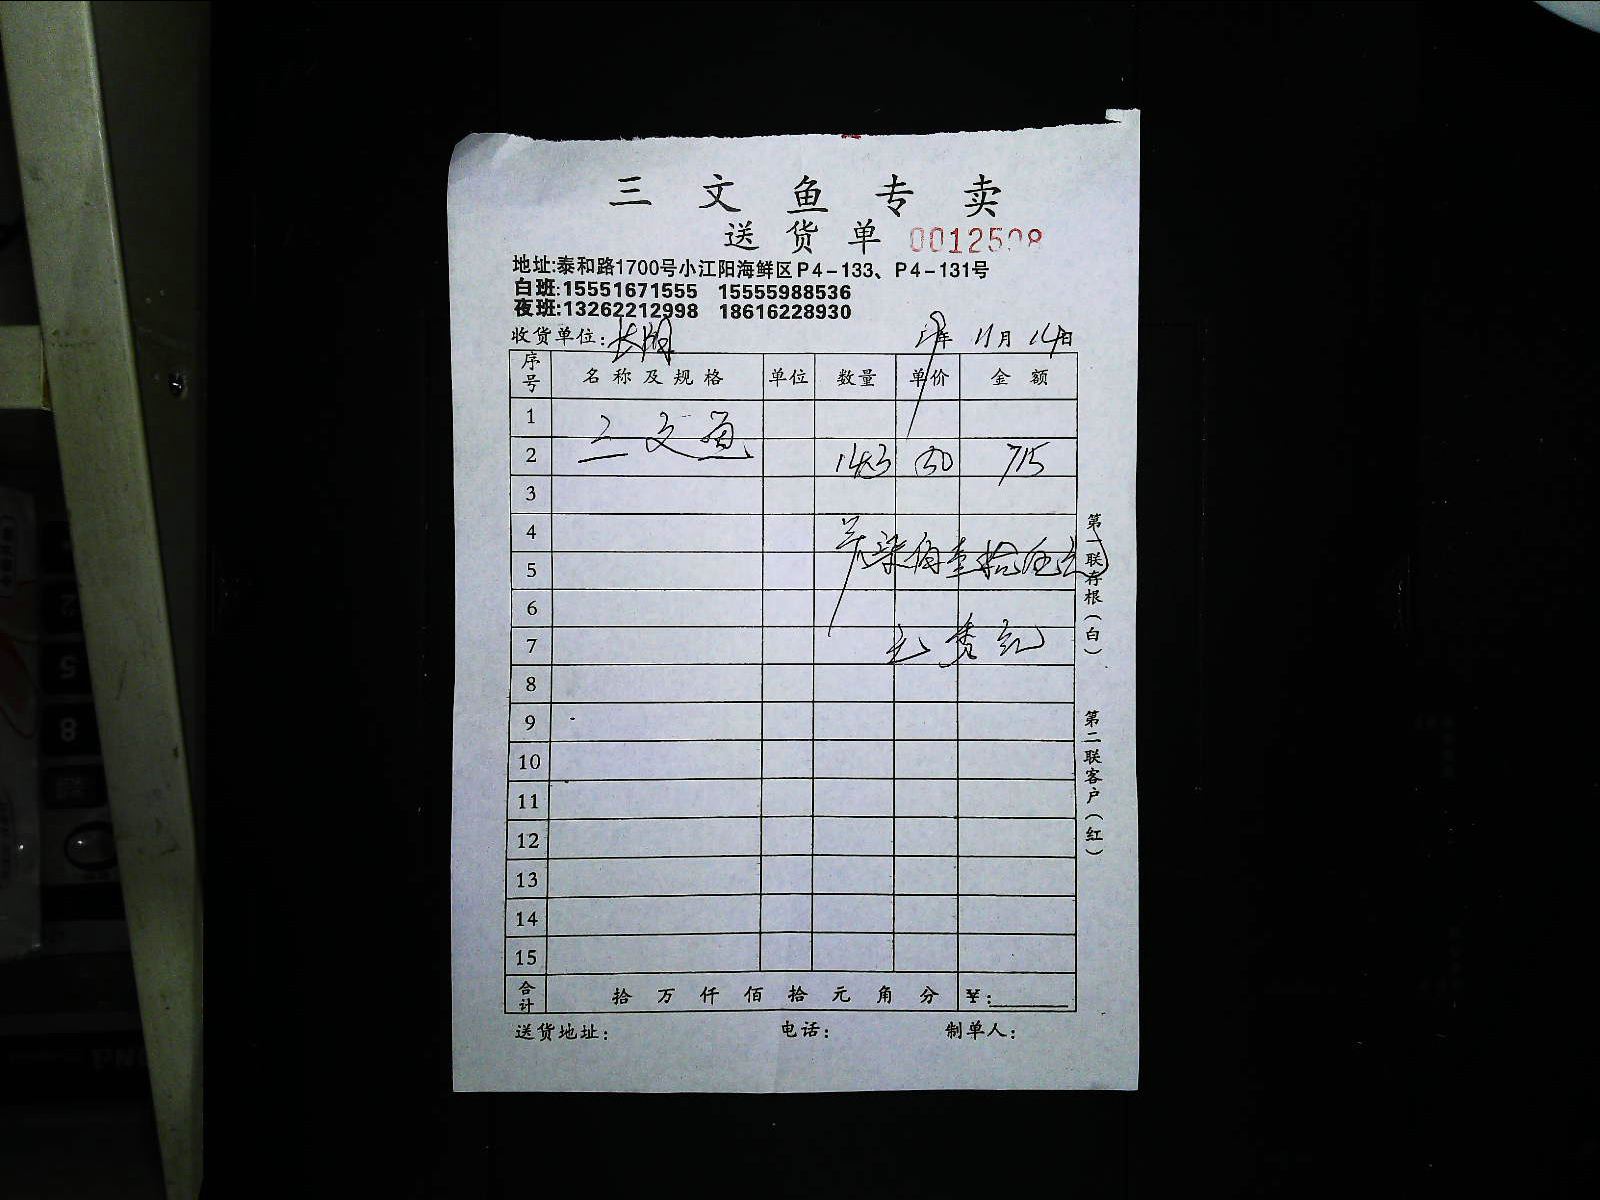 三文鱼专卖
送货单 0012598
地址:泰和路1700号小江阳海鲜区P4-133、P4-131号
白班:15551671555 15555988536
夜班:13262212998 18616228930
收货单位: 年 11月 14日
序号 名称及规格 单位 数量 单价 金额
1
2 三文鱼 143 50 715
3
4
5 柒佰壹拾伍元
6
7
8
9
10
11
12
13
14
15
合计 拾 万 仟 佰 拾 元 角 分 ¥:
送货地址: 电话: 制单人:
第一联存根(白)
第二联客户(红)
5
8